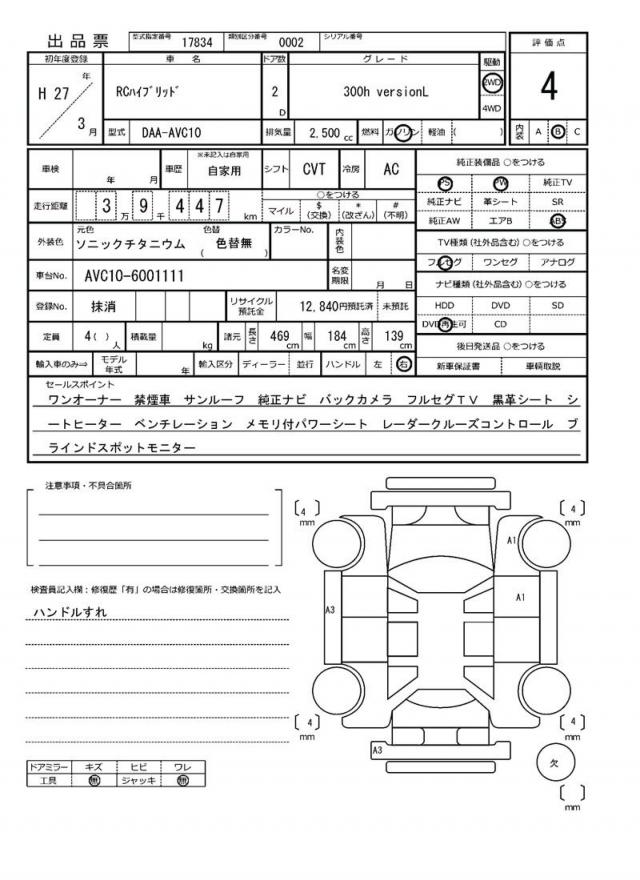 出品票 型式指定番号 17834 類別区分番号 0002 シリアル番号
初年度登録 車名 ドア数 グレード 駆動 評価点
H 27 年 3 月 RCﾊｲﾌﾞﾘｯﾄﾞ 2 D 300h versionL 2WD 4WD 4
型式 DAA-AVC10 排気量 2,500 cc 燃料 ガソリン 軽油 ( ) 内装 A B C
車検 年 月 車歴 ※未記入は自家用 自家用 シフト CVT 冷房 AC
走行距離 3 万 9 千 4 4 7 km ○をつける
マイル $ (交換) * (改ざん) # (不明)
外装色 元色 ソニックチタニウム 色替 ( 色替無 ) カラーNo. 内装色
車台No. AVC10-6001111 名変期限 月 日
登録No. 抹消 リサイクル預託金 12,840円預託済 未預託
定員 4( ) 人 積載量 kg 諸元 長さ 469 cm 幅 184 cm 高さ 139 cm
輸入車のみ⇒ モデル年式 年 輸入区分 ディーラー 並行 ハンドル 左 右
純正装備品 ○をつける
PS PW 純正TV
純正ナビ 革シート SR
純正AW エアB ABS
TV種類(社外品含む) ○をつける
フルセグ ワンセグ アナログ
ナビ種類(社外品含む) ○をつける
HDD DVD SD
DVD再生可 CD
後日発送品 ○をつける
新車保証書 車輌取説
セールスポイント
ワンオーナー 禁煙車 サンルーフ 純正ナビ バックカメラ フルセグTV 黒革シート シ
ートヒーター ベンチレーション メモリ付パワーシート レーダークルーズコントロール ブ
ラインドスポットモニター
注意事項・不具合箇所
検査員記入欄:修復歴「有」の場合は修復箇所・交換箇所を記入
ハンドルすれ
ドアミラー キズ ヒビ ワレ
工具 無 ジャッキ 無
[ 4 ] mm [ 4 ] mm
A1
A3 A1
[ 4 ] mm [ 4 ] mm
A3
欠
[ ] mm